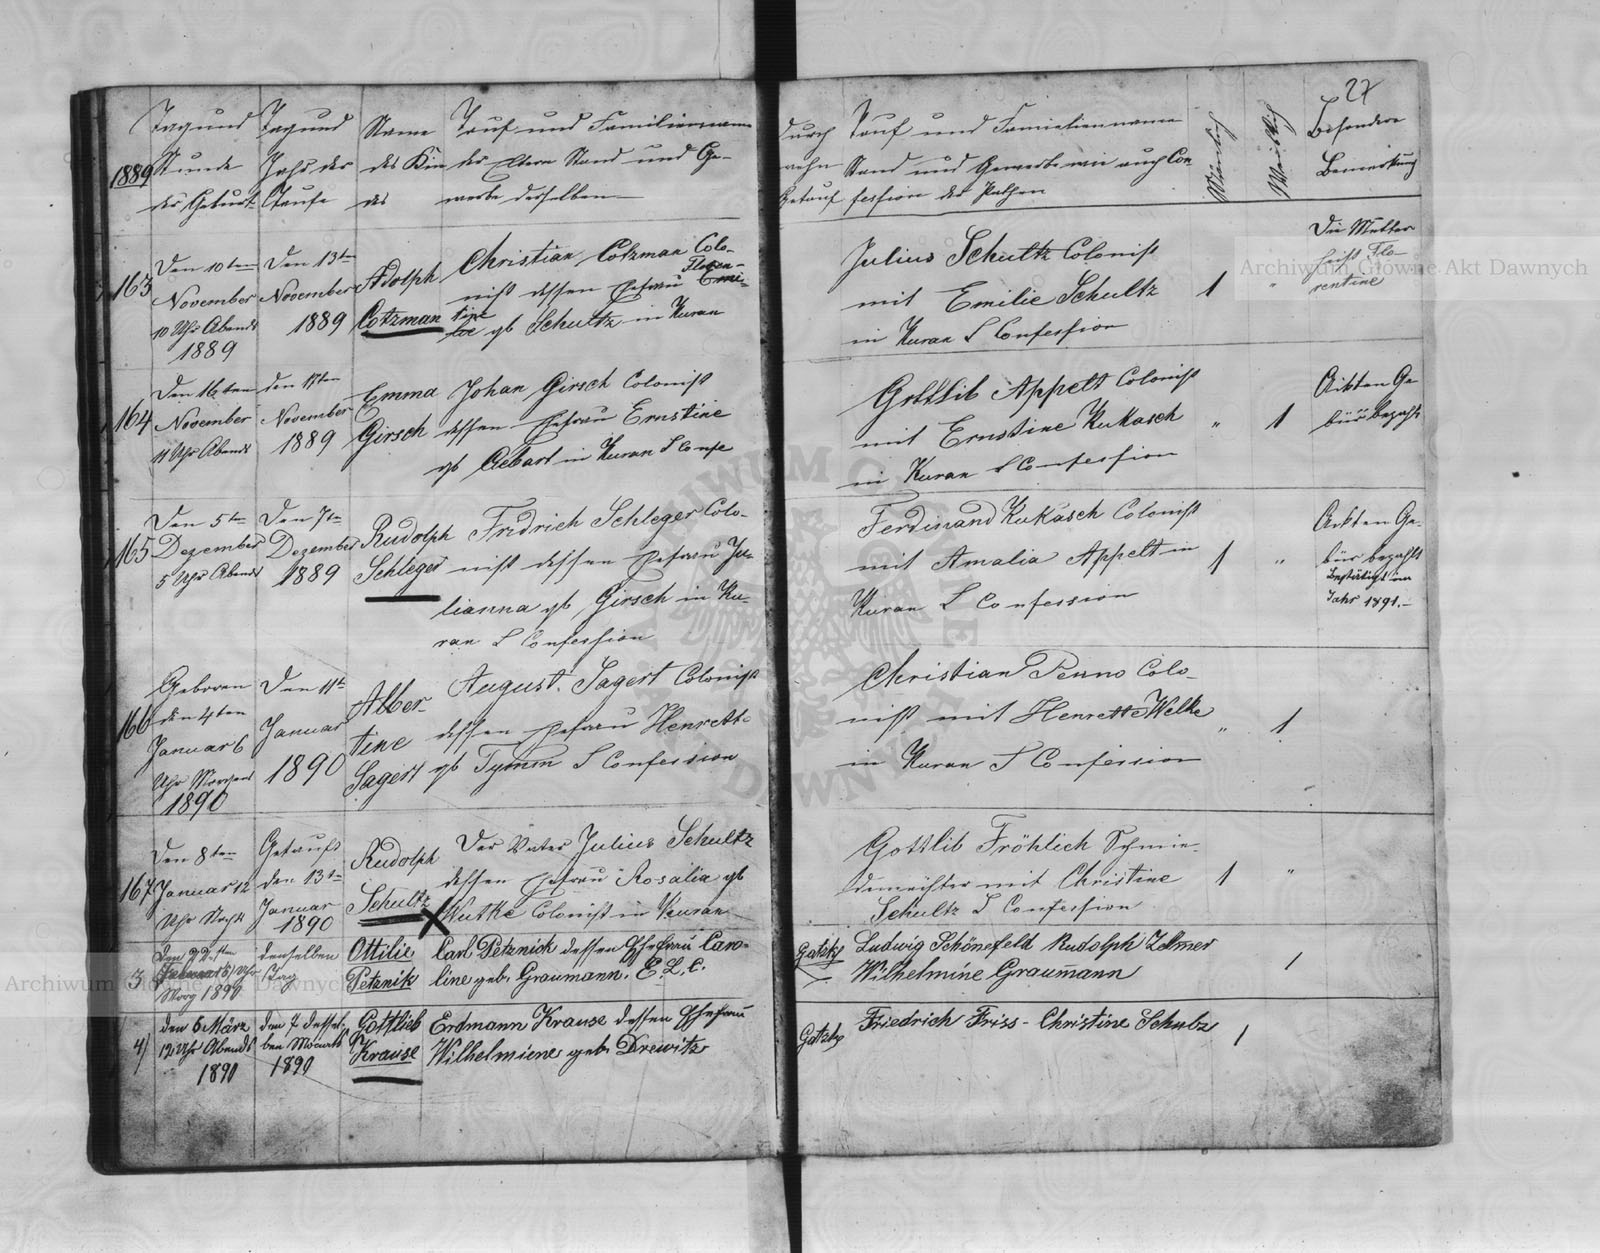 27
1889
Tag und
Stunde
der Geburt
Tag und
Jahr der
Taufe
Name
des Kin
des
Tauf und Familienname
der Eltern Stand und Ge-
werbe derselben
durch
getauf
Tauf und Familienname
Stand und Gewerbe wie auch Con
fession der Pathen
Männlich
Weiblich
Besondere
Bemerkung
163
Den 10ten
November
10 Uhr Abends
1889
Den 13ten
November
1889
Adolph
Cotzman
Christian Cotzman Colo-
nist dessen Ehefrau
Floren-
tine
gb Schultz in Kuran
Julius Schultz Colonist
mit Emilie Schultz
in Kuran L Confession
1
"
Die Mutter
heißt Flo-
rentine
164
Den 16ten
November
11 Uhr Abends
den 17ten
November
1889
Emma
Girsch
Johan Girsch Colonist
dessen Ehefrau Ernstine
gb Gebart in Kuran L Confe
Gottlib Appelt Colonist
mit Ernstine Kukasch
in Kuran L Confession
"
1
Akten Ge
bür bezahlt
165
Den 5ten
Dezember
5 Uhr Abends
Den 7ten
Dezember
1889
Rudolph
Schleger
Fridrich Schleger Colo-
nist dessen Ehefrau Ju-
lianna gb Girsch in Ku-
ran L Confession
Ferdinand Kukasch Colonist
mit Amalia Appelt in
Kuran L Confession
1
"
Akten Ge-
bür bezahlt
Bestätigt im
Jahr 1891.-
166
Geboren
den 4ten
Januar 6
Uhr Morgens
1890
Den 11te
Januar
1890
Alber-
tine
Sagert
August Sagert Colonist
dessen Ehefrau Henrette
gb Tymm L Confession
Christian Penno Colo-
nist mit Henrette Welke
in Kuran L Confession
"
1
167
Den 8ten
Januar 12
Uhr Nacht
Getauft
den 13te
Januar
1890
Rudolph
Schultz
Der Vater Julius Schultz
dessen Ehefrau Rosalia gb
Wutke Colonist in Kuran
Gottlib Fröhlich Schmie-
demeister mit Christine
Schultz L Confession
1
"
3
den 22.ten
Februar 6 Uhr
Morg 1890
denselben
Tag
Ottilie
Petznik
Carl Petznick dessen Ehefrau Caro-
line geb. Graumann. E. L. C.
Gatzky
Ludwig Schönefeld Rudolph Zelmer
Wilhelmine Graumann
1
4)
den 6 März
12 Uhr Abends
1890
den 7 dessel-
ben Monats
1890
Gottlieb
Krause
Erdmann Krause dessen Ehefrau
Wilhelmiene geb. Drewitz
Gatzky
Friedrich Friss - Christine Schulz
1
Archiwum Główne Akt Dawnych
Archiwum Główne Akt Dawnych